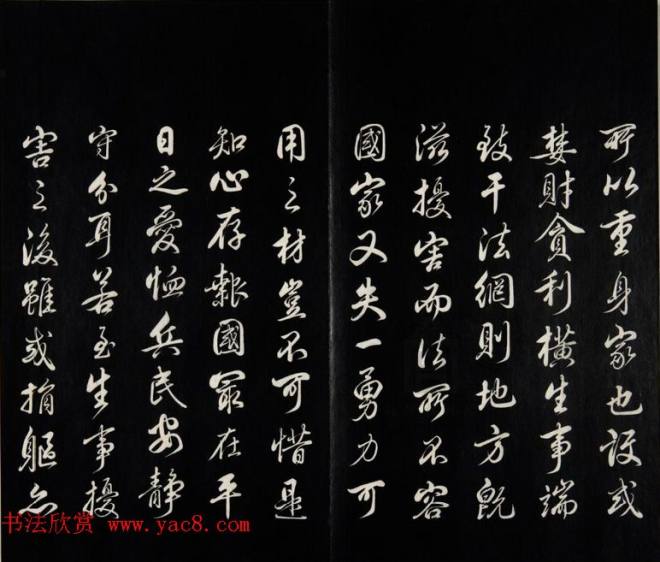 所以重身家也设或
婪財貪利橫生事端
致干法網則地方既
滋擾害而法所不容
國家又失一勇力可
用之材豈不可惜是
知心存報國家在平
日之愛恤兵民安靜
守分耳若至生事擾
害之後雖或捐軀亦
书法欣赏 www.yac8.com